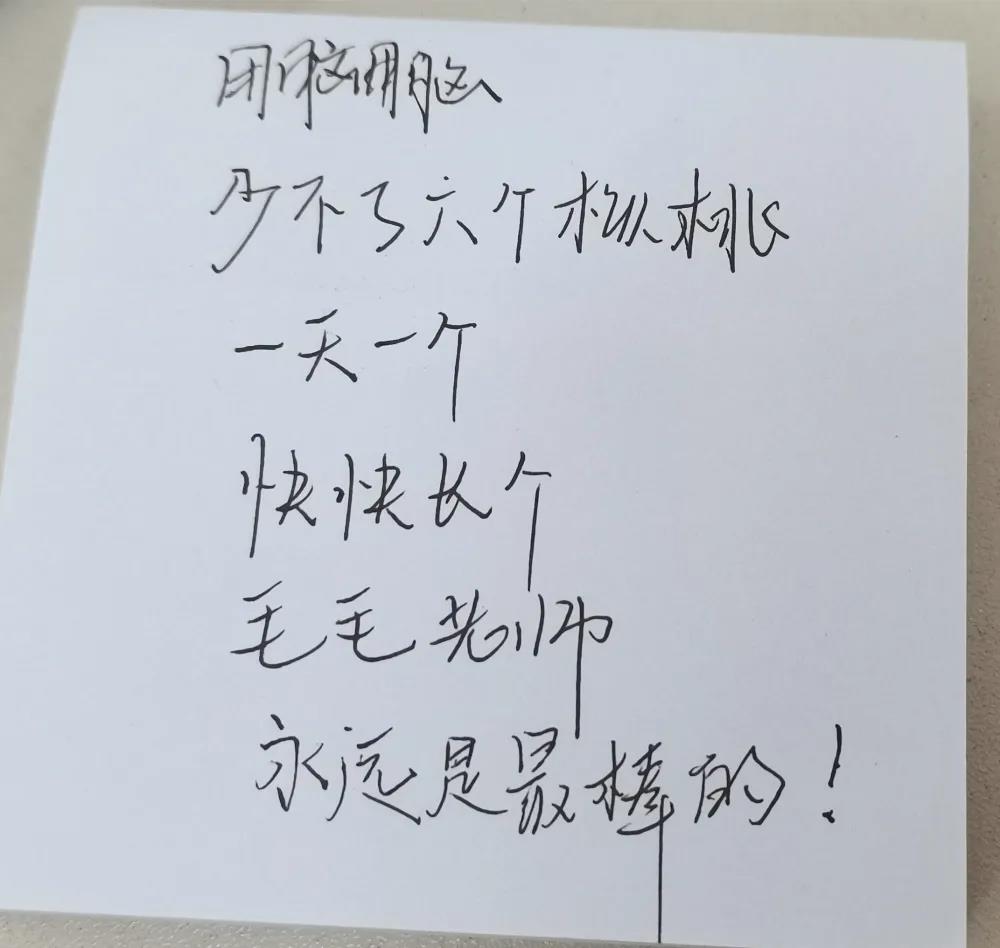 用脑用脑
少不了六个核桃
一天一个
快快长个
毛毛老师
永远是最棒的！